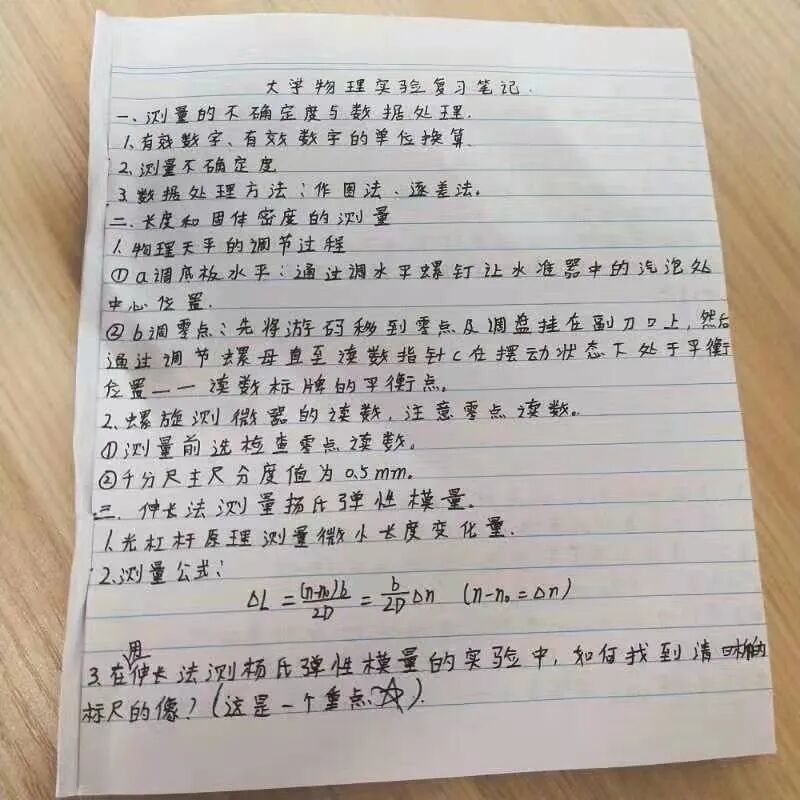 大学物理实验复习笔记.
一、测量的不确定度与数据处理.
1.有效数字、有效数字的单位换算.
2.测量不确定度
3.数据处理方法:作图法、逐差法。
二、长度和固体密度的测量
1.物理天平的调节过程
①a调底板水平:通过调水平螺钉让水准器中的汽泡处
中心位置.
②b调零点:先将游码移到零点及调盘挂在副刀口上,然后
通过调节螺母直至读数指针C在摆动状态下处于平衡
位置——读数标牌的平衡点。
2.螺旋测微器的读数,注意零点读数。
①测量前选检查零点读数。
②千分尺主尺分度值为0.5mm。
三、伸长法测量扬氏弹性模量。
1.光杠杆原理测量微小长度变化量.
2.测量公式:
ΔL = (n-n₀)b/2D = b/2D Δn (n-n₀=Δn)
3.在用伸长法测杨氏弹性模量的实验中,如何找到清晰的
标尺的像?(这是一个重点☆).